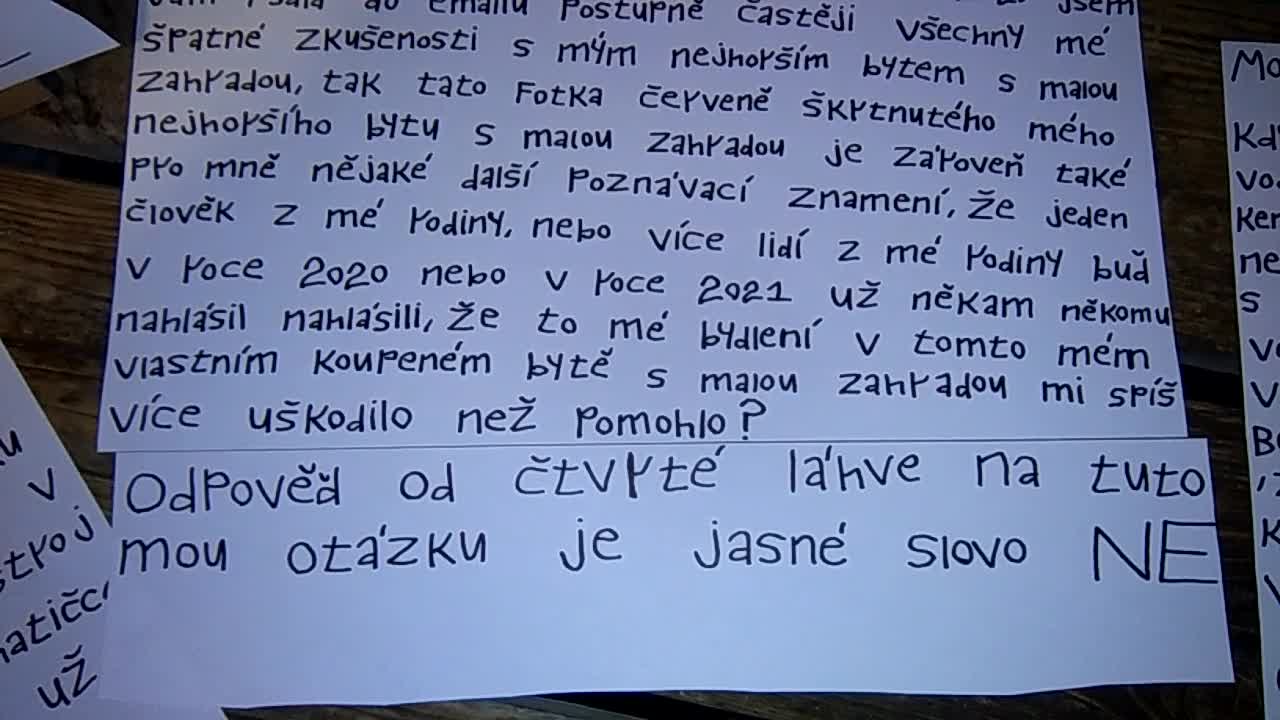 psala do emailu postupně častěji všechny mé
špatné zkušenosti s mým nejhorším bytem s malou
zahradou, tak tato Fotka červeně škrtnutého mého
nejhoršího bytu s malou zahradou je zároveň také
pro mně nějaké další poznávací znamení, že jeden
člověk z mé rodiny, nebo více lidí z mé rodiny buď
v roce 2020 nebo v roce 2021 už někam někomu
nahlásil nahlásili, že to mé bydlení v tomto mém
vlastním koupeném bytě s malou zahradou mi spíš
více uškodilo než pomohlo?
Odpověď od čtvrté láhve na tuto
mou otázku je jasné slovo NE
v
už
Kd
vo
ne
s
V